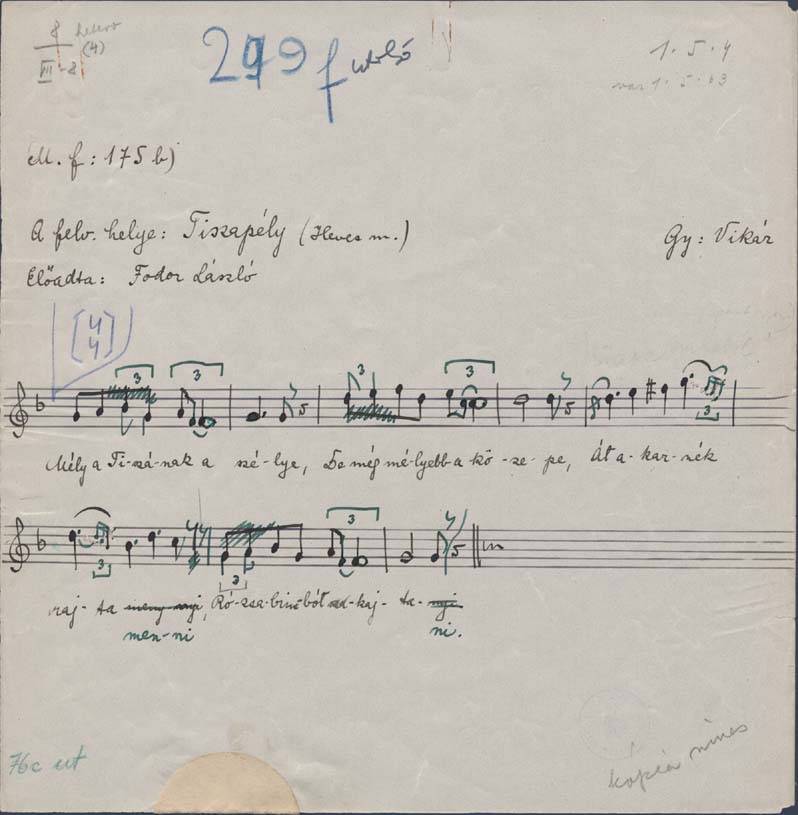 8
VII-2
(4)
299 f utolsó
1.5.4
var 1.5.63
M. f: 175 b)
A felv. helye: Tiszapély (Heves m.)
Gy: Vikár
Előadta: Fodor László
[4
4]
3 3 3 3 3
Mély a Ti-szá-nak a szé-lye, De még mé-lyebb a kö-ze-pe, Át a-kar-nék
3 3 3
raj-ta meny-nyi, Ró-zsa-bim-bót kaj-ta-nyi
men-ni ni.
76c ut
kópia nincs